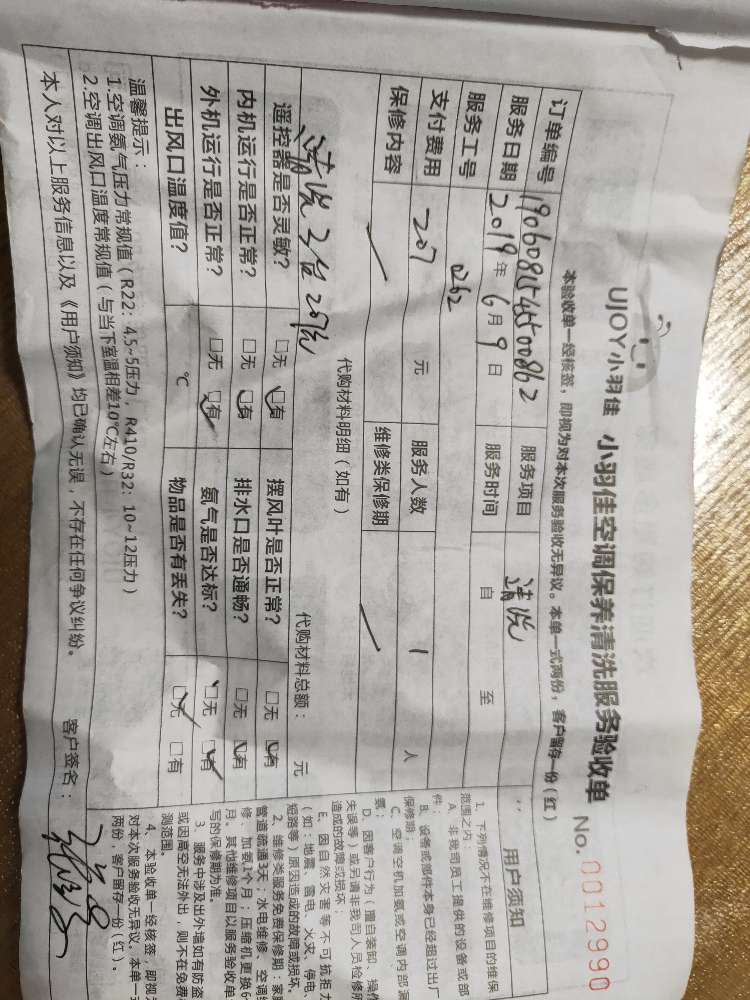 UJOY小羽佳 小羽佳空调保养清洗服务验收单 No. 0012990
本验收单一经核签，即视为对本次服务验收无异议。本单一式两份，客户留存一份（红）
订单编号 服务项目 清洗
服务日期 2019年6月9日 服务时间 自 至
服务工号 0862
支付费用 207 元 服务人数 1 人
保修内容 维修类保修期
代购材料明细（如有）
清洗3台207元
代购材料总额： 元
遥控器是否灵敏？ □无 □有 摆风叶是否正常？ □无 □有
内机运行是否正常？ □无 □有 排水口是否通畅？ □无 □有
外机运行是否正常？ □无 □有 氨气是否达标？ □无 □有
出风口温度值？ ℃ 物品是否有丢失？ □无 □有
温馨提示：
1.空调氨气压力常规值（R22：4.5~5压力，R410/R32：10~12压力）
2.空调出风口温度常规值（与当下室温相差10℃左右）
本人对以上服务信息以及《用户须知》均已确认无误，不存在任何争议纠纷。 客户签名：
用户须知
1、下列情况不在维修项目的维保
范围之内
A、非我司员工提供的设备或部
件；
B、设备或部件本身已经超过出厂
保修期；
C、空调空机加氨或空调内部漏
氨；
D、因客户行为（擅自装卸、操作
失误等）或另请非我司人员检修所
造成的故障或损坏；
E、因自然灾害等不可抗拒力
（如：地震、雷电、火灾、停电、
短路等）原因造成的故障或损坏。
2、维修类服务免费保修期：家
管道疏通3天；水电维修、空调
修、加氨1个月；压缩机更换6
月。其他维修项目以服务验收单
写的保修期为准。
3、服务中涉及出外墙如有防盗
或因高空无法外出，则不在免费
测范围。
4、本验收单一经核签，即视为
对本次服务验收无异议。本单一式
两份，客户留存一份（红）。